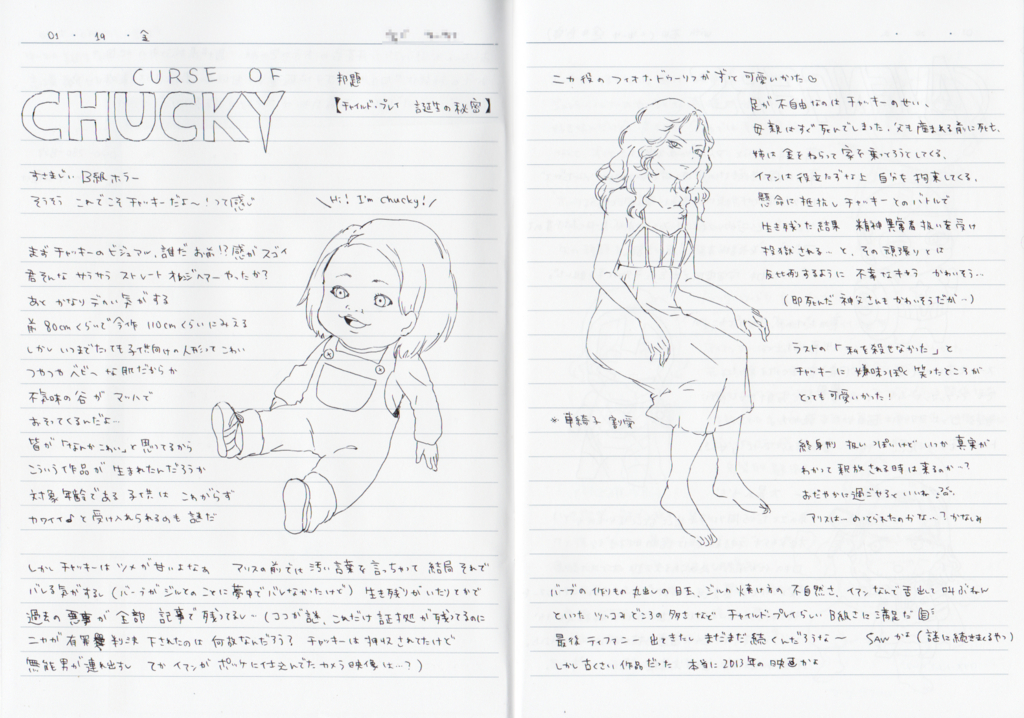 01・19・金
CURSE OF
CHUCKY
邦題
【チャイルド・プレイ 誕生の秘密】
すさまじいB級ホラー
そうそう これでこそチャッキーだよ〜！って感じ
\Hi! I'm chucky!/
まずチャッキーのビジュアル、誰だお前!?感がスゴイ
君そんな サラサラ ストレート オレンジヘアーやったか？
あと かなりデカい気がする
前80cmくらいで今作110cmくらいにみえる
しかしいつまでたっても子供向けの人形ってこわい
フカフカベビ〜な肌だからか
不気味の谷が マッハで
おそってくるんだよ…
皆が「なんかこわい」と思ってるから
こういう作品が生まれたんだろうか
対象年齢である子供は これがらず
カワイイ♪と受け入れられるのも謎だ
しかしチャッキーはツメが甘いよなぁ アリスの前では汚い言葉を言っちゃって結局それで
バレる気がするし（バーブがジルとのことに夢中でバレなかったけど）生き残りがいたりとかで
過去の悪事が全部 記事で残ってるし〜（ココが謎、これだけ証拠が残ってるのに
ニカが有罪判決下されたのは何故なんだろう？ チャッキーは押収されてたけど
無能男が連れ出すし てかイアンがポッケに仕込んでたカメラ映像は…？）
ニカ役のフィオナ・ドゥーリフがずっと可愛いかった♡
足が不自由なのはチャッキーのせい、
母親はすぐ死んでしまった、父も産まれる前に死亡、
姉は金をねらって家を乗っとろうとしてくる、
イアンは役立たずな上 自分を拘束してくる、
懸命に抵抗しチャッキーとのバトルで
生き残った結果 精神異常者扱いを受け
投獄される…と、その頑張りとは
反比例するように不幸なキャラ かわいそう…
（即死んだ神父さんもかわいそうだが…）
ラストの「私を殺せなかった」と
チャッキーに 嫌味っぽく笑ったところが
とっても可愛いかった！
＊車椅子 割愛
終身刑 扱いっぽいけどいつか真実が
わかって釈放される時は来るのか…？
おだやかに過ごせるといいね
アリスは…のっとられたのかな…？かなしみ
バーブの作りもの丸出しの目玉、ジルの焼け方の不自然さ、イアンなんで舌出して叫ぶねん
といった ツッコミどころの多さなど チャイルドプレイらしいB級さに満足だ
最後ティファニー出てきたし まだまだ続くんだろうな〜 SAWかよ（謎に続きまくるやつ）
しかし古くさい作品だった 本当に2013年の映画かよ